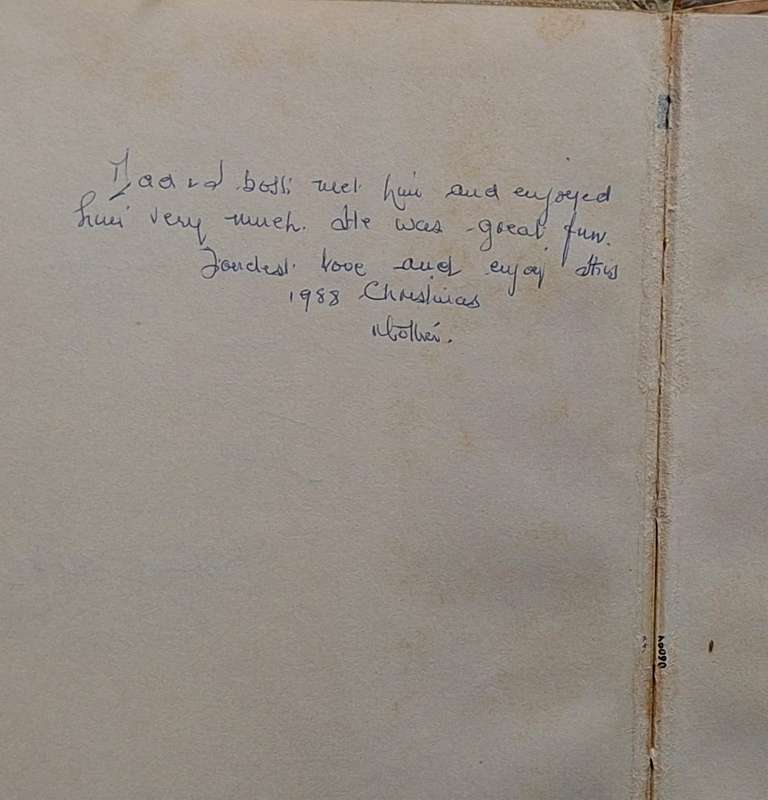 Dad & I both met him and enjoyed
him very much. He was great fun.
Fondest love and enjoy this
1988 Christmas
Mother.